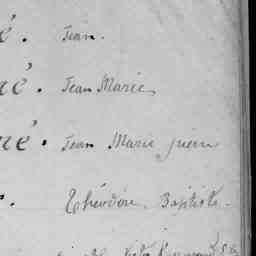 é. Jean.
né. Jean Marie
né. Jean Marie pierre
Théodore. Baptiste.